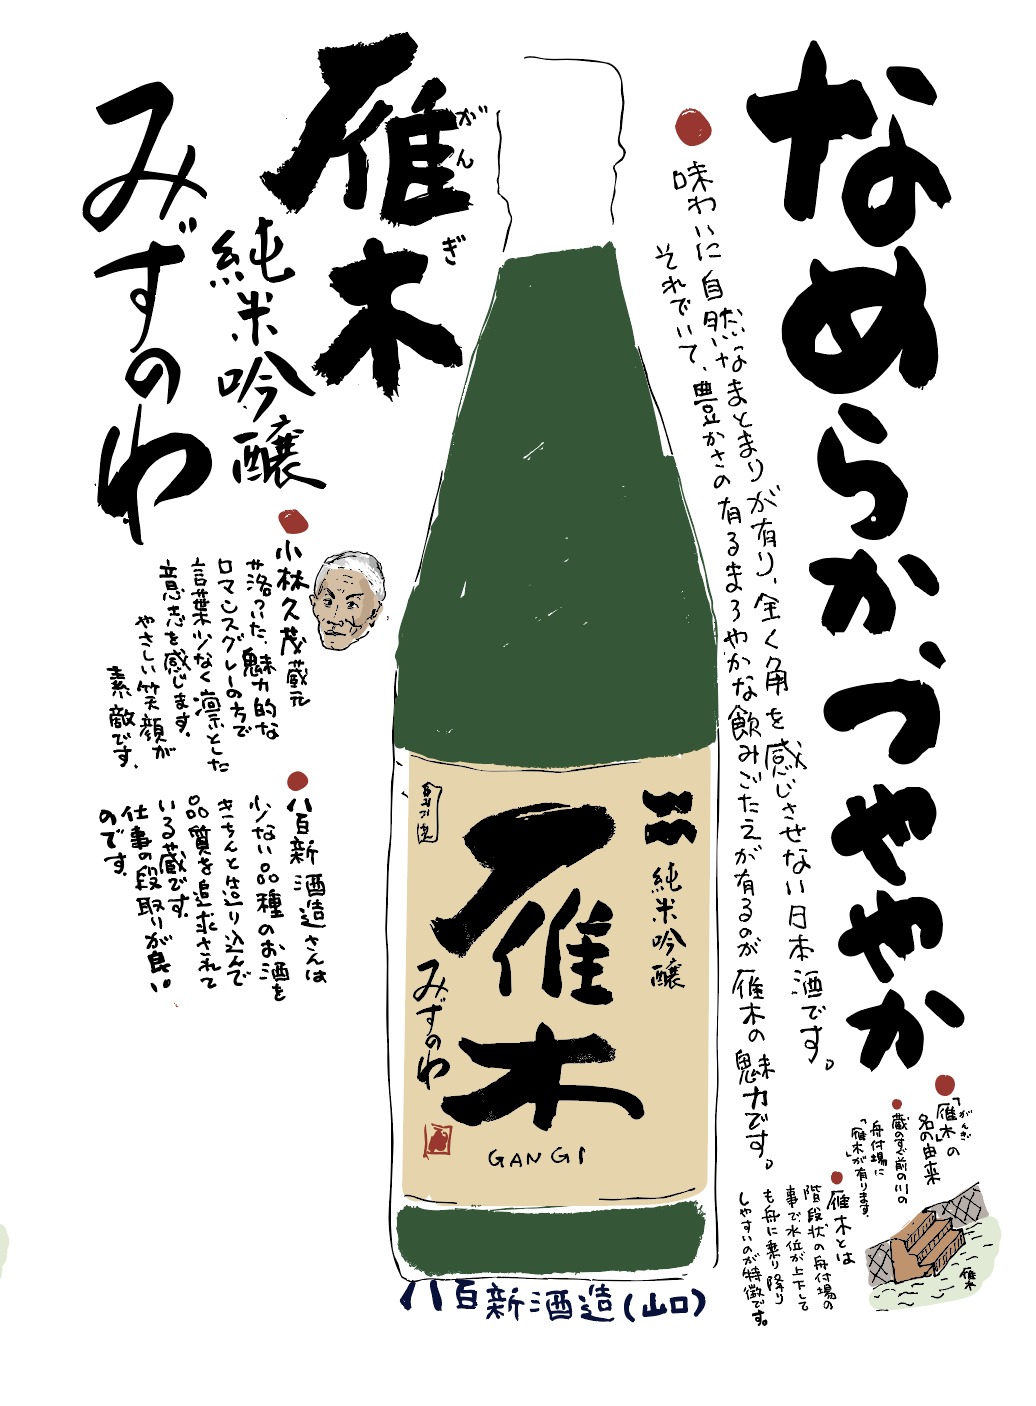 なめらか、つややか
味わいに自然なまとまりが有り、全く角を感じさせない日本酒です。
それでいて、豊かさの有るまろやかな飲みごたえが有るのが雁木の魅力です。
「雁木」の
がんぎ
名の由来
蔵のすぐ前の川の
舟付場に
「雁木」が有ります。
雁木とは
階段状の舟付場の
事で水位が上下して
も舟に乗り降り
しやすいのが特徴です。
雁木
雁木
がんぎ
純米吟醸
みずのわ
小林久茂蔵元
落ついた、魅力的な
ロマンスグレーの方で
言葉少なく凛とした
意志を感じます。
やさしい笑顔が
素敵です。
八百新酒造さんは
少ない品種のお酒を
きちんと造り込んで
品質を追求されて
いる蔵です。
仕事の段取りが良い
のです。
純米吟醸
雁木
みずのわ
GANGI
八百新酒造(山口)